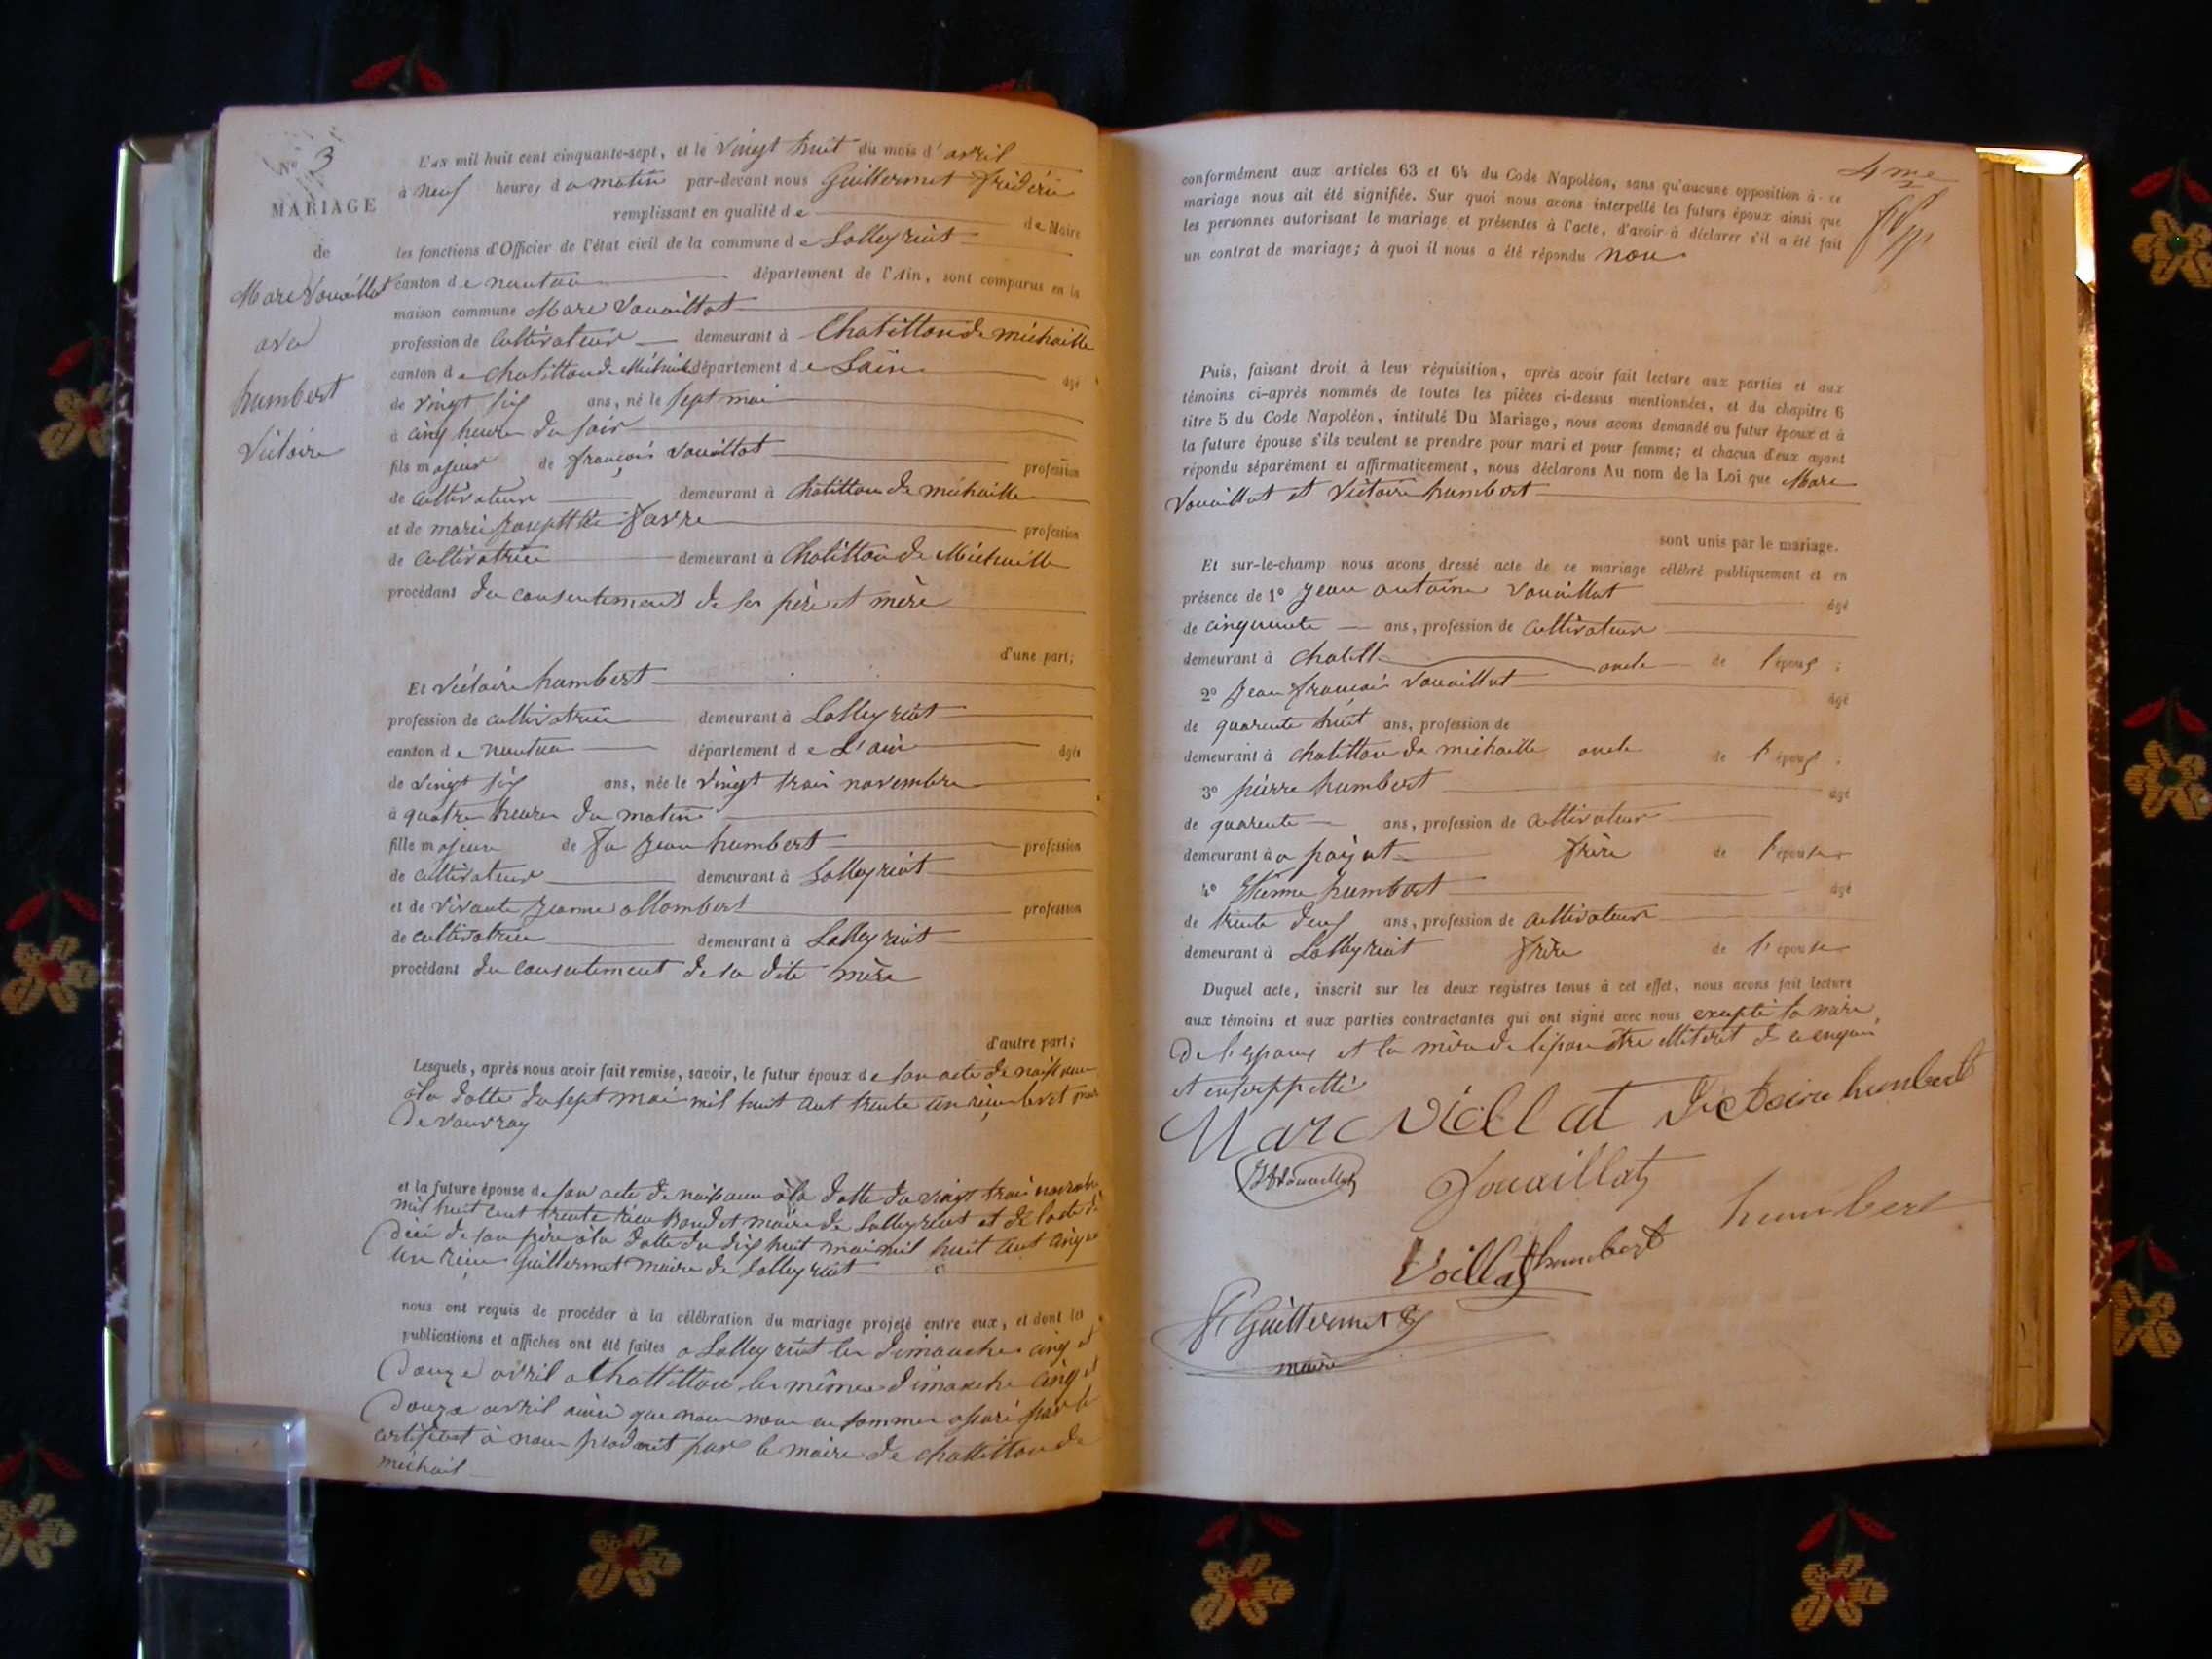 No 3
MARIAGE
de
Marc Vouaillat
avec
humbert
Victoire
L'an mil huit cent cinquante-sept, et le vingt huit du mois d'avril
à neuf heures du matin par-devant nous Guillermet frédéric
remplissant en qualité de de Maire
les fonctions d'Officier de l'état civil de la commune de Lalleyriat
canton de nantua département de l'Ain, sont comparus en la
maison commune Marc Vouaillat
profession de cultivateur demeurant à Chatillon de michaille
canton de chatillon de Michaille département de Lain âgé
de vingt six ans, né le sept mai
à cinq heures du soir
fils majeur de françois Vouaillat profession
de cultivateur demeurant à Chatillon de michaille
et de marie Josephtte favre profession
de cultivatrice demeurant à Chatillon de Michaille
procédant du consentement de ses père et mère
d'une part;
Et Victoire humbert
profession de cultivatrice demeurant à Lalleyriat
canton de nantua département de L'ain âgée
de vingt six ans, née le vingt trois novembre
à quatre heures du matin
fille majeure de fu Jean humbert profession
de cultivateur demeurant à Lalleyriat
et de vivante Jeanne allombert profession
de cultivatrice demeurant à Lalleyriat
procédant du consentement de sa dite mère
d'autre part;
Lesquels, après nous avoir fait remise, savoir, le futur époux de son acte de naissance
à la datte du sept mai mil huit cent trente un reçu
de vauvray
et la future épouse de son acte de naissance à la datte du vingt trois novembre
mil huit cent trente reçu maire de Lalleyriat et de l'acte de
décé de son père à la datte du dix huit mai mil huit cent cinquante
un reçu Guillermet maire de Lalleyriat
nous ont requis de procéder à la célébration du mariage projeté entre eux, et dont les
publications et affiches ont été faites a Lalleyriat les dimanches cinq et
douze avril a Chattillon les mêmes dimanche cinq et
douze avril ainsi que nous nous en sommes assuré par le
certificat à nous produit par le maire de chattillon de
michail
4me
conformément aux articles 63 et 64 du Code Napoléon, sans qu'aucune opposition à ce
mariage nous ait été signifiée. Sur quoi nous avons interpellé les futurs époux ainsi que
les personnes autorisant le mariage et présentes à l'acte, d'avoir à déclarer s'il a été fait
un contrat de mariage; à quoi il nous a été répondu non
Puis, faisant droit à leur réquisition, après avoir fait lecture aux parties et aux
témoins ci-après nommés de toutes les pièces ci-dessus mentionnées, et du chapitre 6
titre 5 du Code Napoléon, intitulé Du Mariage, nous avons demandé au futur époux et à
la future épouse s'ils veulent se prendre pour mari et pour femme; et chacun d'eux ayant
répondu séparément et affirmativement, nous déclarons Au nom de la Loi que Marc
Vouaillat et Victoire humbert
sont unis par le mariage.
Et sur-le-champ nous avons dressé acte de ce mariage célébré publiquement et en
présence de 1º Jean antoine Vouaillat âgé
de cinquante ans, profession de cultivateur
demeurant à chatill oncle de l'époux;
2º Jean françois Vouaillat âgé
de quarente huit ans, profession de
demeurant à chatillon de michaille oncle de l'époux;
3º pierre humbert âgé
de quarente ans, profession de cultivateur
demeurant à frère de l'épouse
4º Etienne humbert âgé
de trente deux ans, profession de cultivateur
demeurant à Lalleyriat frère de l'épouse
Duquel acte, inscrit sur les deux registres tenus à cet effet, nous avons fait lecture
aux témoins et aux parties contractantes qui ont signé avec nous excepté la mère
de l'époux et la mère de l'épouse de ce enquis
et interppellé
Marc Viollat Victoire humbert
Vouaillat
humbert
Voillat humbert
F Guillermet
maire